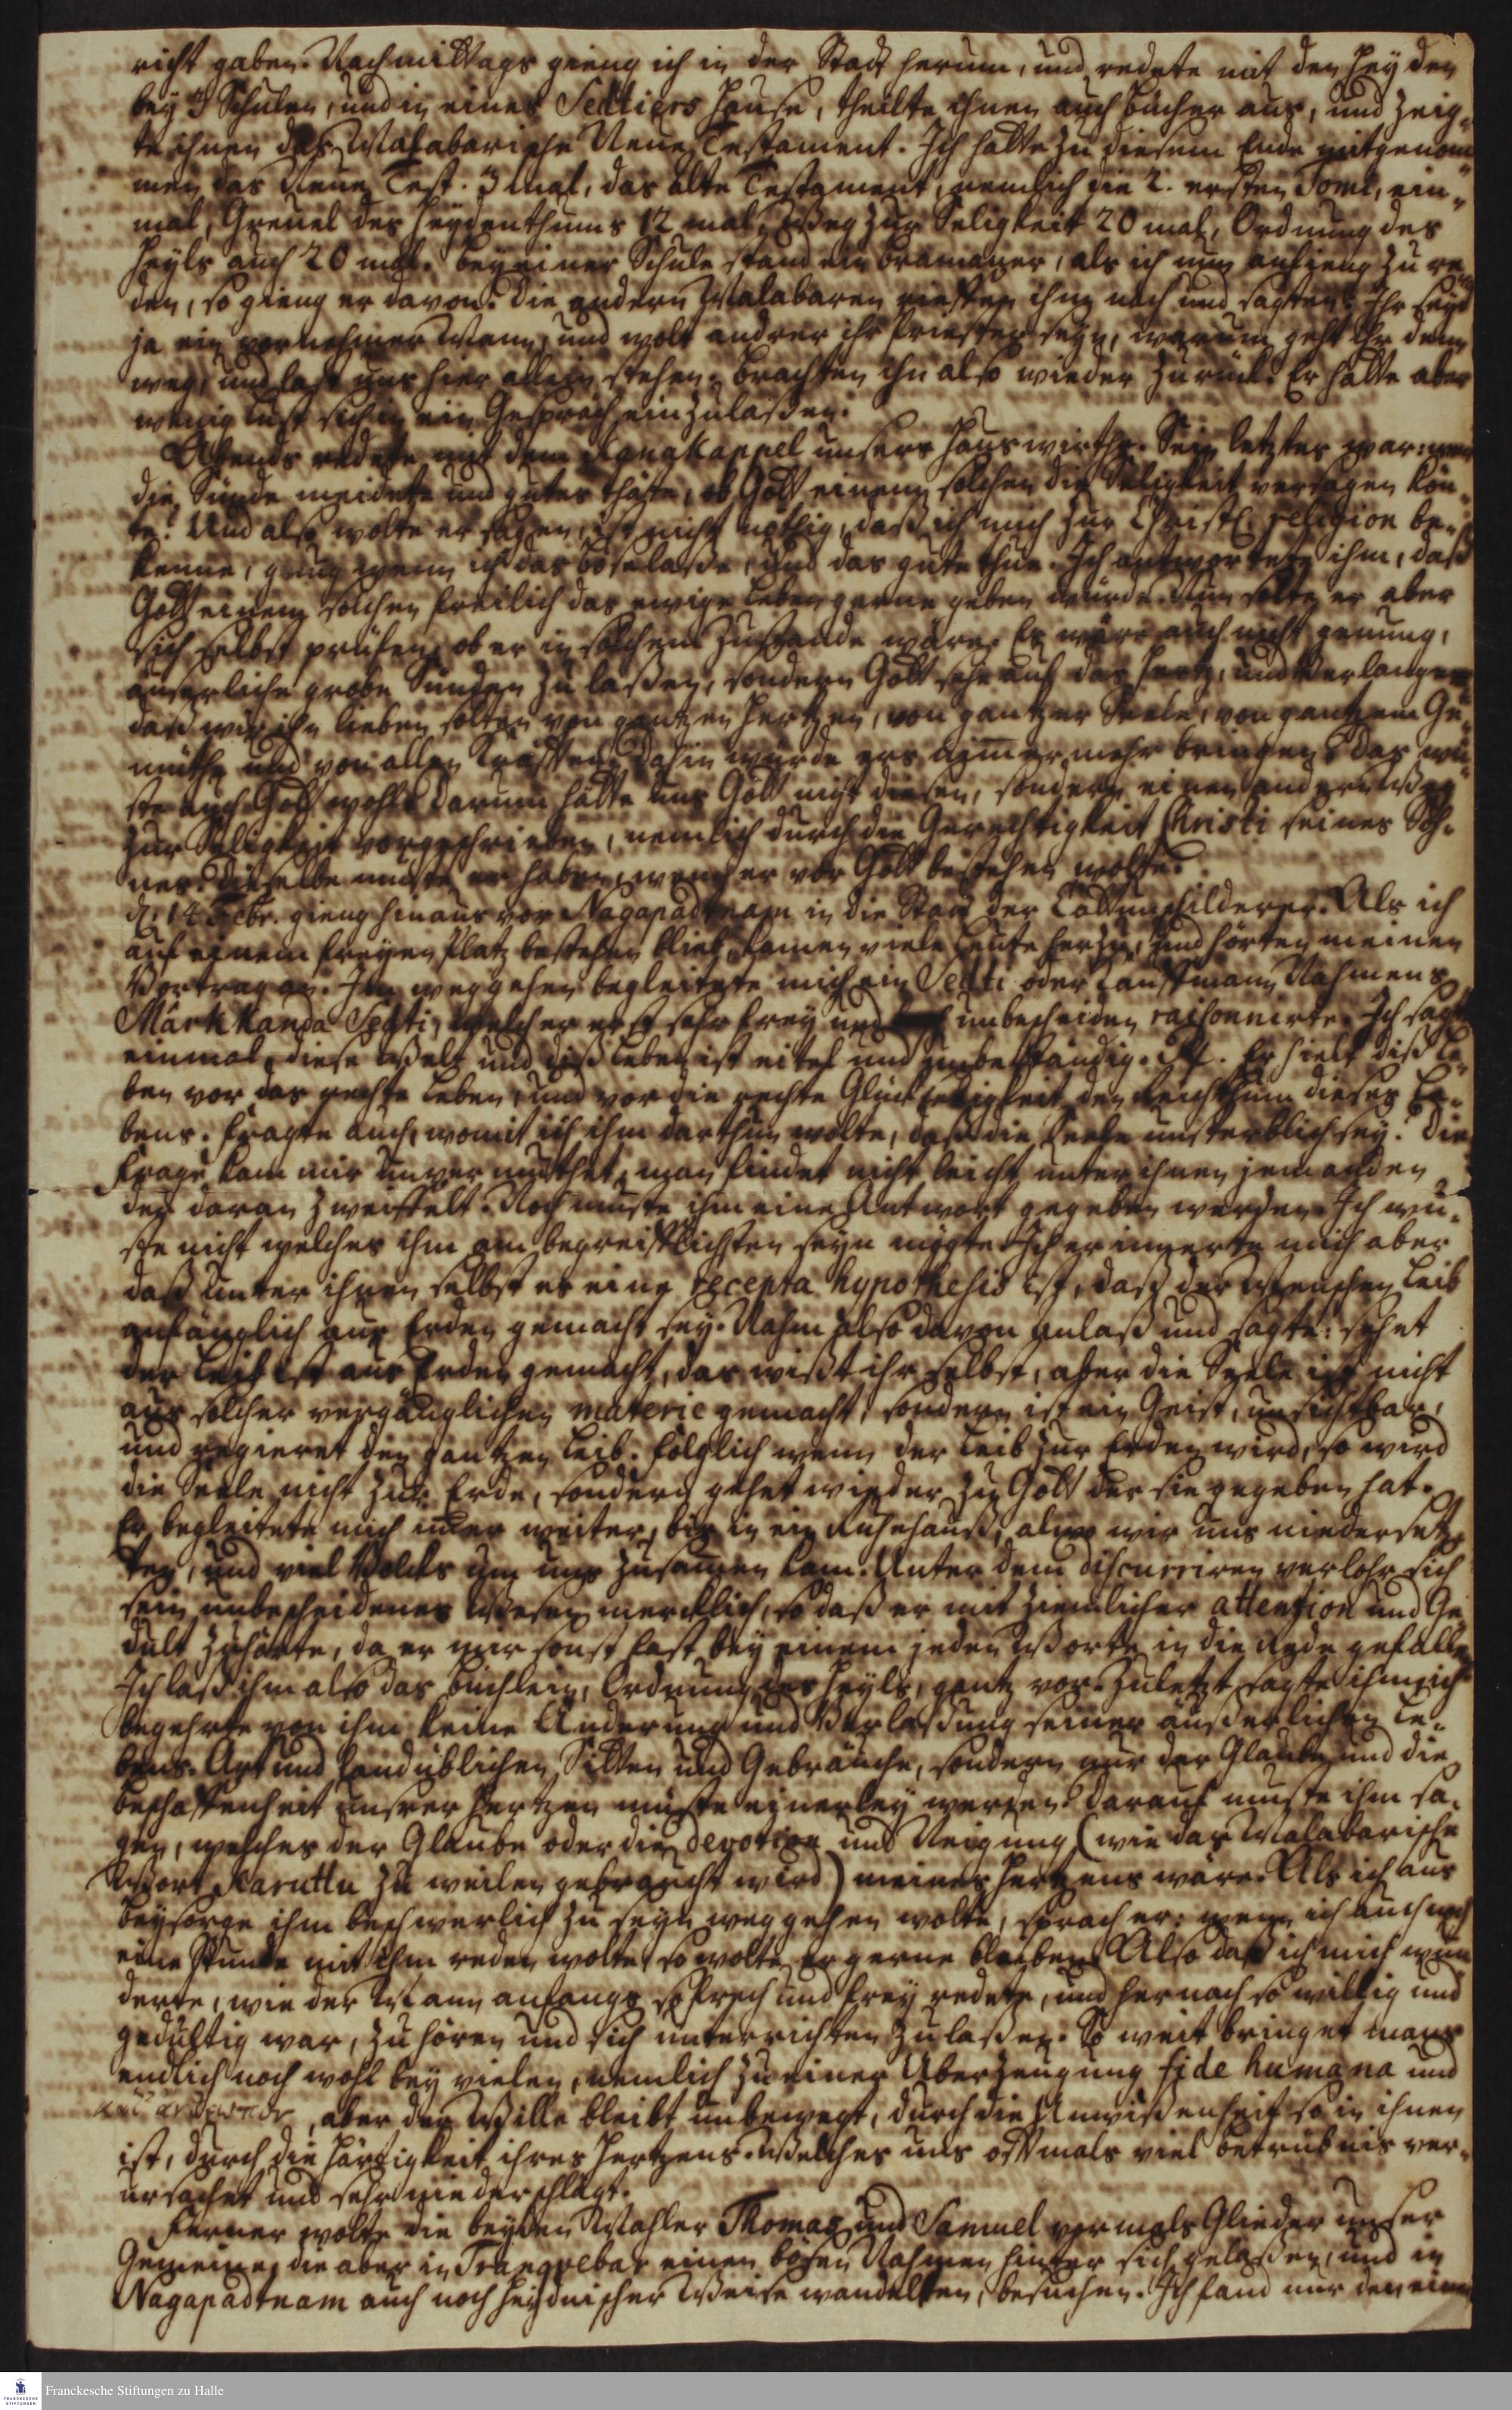 richt gaben. Nachmittags gieng ich in der Stadt herum, und redete mit den Heyden
bey 3 Schulen, und in eines Settiers Hause, theilte ihnen auch bücher aus, und zeig-
te ihnen das Malabarische Neue Testament. Ich hatte zu diesem Ende mitgenom-
men das Neue Test. 3 mal, das alte Testament, nemlich die 2. ersten Tomi, ein-
mal, Greuel des Heydenthums 12 mal, Weg zur Seligkeit 20 mal, Ordnung des
Heyls auch 20 mal. bey einer Schule stand ein bramaner, als ich nun anfieng zu re-
den, so gieng er davon. die andern Malabaren rieffen ihm nach und sagten: Ihr seyd
ja ein vornehmer Mann, und wolt andrer ihr Priester seyn, warum geht Ihr denn
weg, und last uns hier allein stehen, brachten ihn also wieder zurück. Er hatte aber
wenig lust sich in ein Gespräch einzulaßen.
Abends redete mit dem Kanakappel unsers Hauswirths. Sein letztes war: wer
die Sünde meidete und gutes thäte, ob Gott einem solchen die Seligkeit versagen kön-
te? Und also wolte er sagen, ist nicht nöthig, daß ich mich zur Christl. religion be-
kenne, gnug wenn ich das böse laße, und das gute thue. Ich antwortete ihm, daß
Gott einem solchen freilich das ewige Leben gerne geben würde. Nun solte er aber
sich selbst prüfen, ob er in solchem Zustande wäre. Es wäre auch nicht genung,
äuserliche grobe Sünden zu laßen, sondern Gott sehe auf das Hertz, und Verlange
daß wir ihn lieben solten von gantzen Hertzen, von gantzer Seele, von gantzem Ge-
müthe und von allen Kräfften. dahin würde ers nimmermehr bringen. das wü-
ste auch Gott wohl. darum hätte uns Gott nicht diesen, sondern einen andern Weg
zur Seligkeit vorgeschrieben, nemlich durch die Gerechtigkeit Christi seines Soh-
nes. dieselbe müste er haben, wenn er vor Gott bestehen wolte.
d. 14 Febr. gieng hinaus vor Nagapadtnam in die Stadt der Cattunschilderer. Als ich
auf einem freyen Platz bestehen blieb, kamen viele Leute herzu, und hörten meinen
Vortrag an. Im weggehen begleitete mich ein Setti oder Kauffmann Nahmens
Märkkanda Setti, welcher erst sehr frey und unbescheiden raisonnirte. Ich sagte
einmal, diese Welt und diß Leben ist eitel und unbeständig. Er hielt diß Le-
ben vor das rechte Leben, und vor die rechte Glückseligkeit den Reichthum dieses Le-
bens. fragte auch, womit ich ihm darthun wolte, daß die Seele unsterblich sey? die
Frage kam mir unvermuthet, man findet nicht leicht unter ihnen jemanden
der daran zweiffelt. Noch muste ihm eine Antwort gegeben werden. Ich wu-
ste nicht welches ihm am begreifflichsten seyn mögte. Ich erinnerte mich aber
daß unter ihnen selbst es eine recepta hypothesis ist, daß der Menschen Leib
anfänglich aus Erden gemacht sey. Nahm also davon anlaß und sagte: sehet
der Leib ist aus Erden gemacht, das wißt ihr selbst, aber die Seele ist nicht
aus solcher vergänglichen materie gemacht, sondern ist ein Geist, unsichtbar,
und regieret den gantzen Leib. folglich wenn der Leib zur Erden wird, so wird
die Seele nicht zur Erde, sondern gehet wieder zu Gott der sie gegeben hat.
Er begleitete mich imer weiter, bis in ein Ruhehauß, alwo wir uns niedersetz-
ten, und viel Volcks um uns zusamen kam. Unter dem discurriren verlohr sich
sein unbescheidenes Wesen mercklich, so daß er mit ziemlicher attention und Ge-
dult zuhörte, da er mir sonst fast bey einem jeden Worte in die Rede gefallen
Ich laß ihm also das büchlein, Ordnung des Heyls, gantz vor. Zuletzt sagte ihm, ich
begehrte von ihm keine Änderung und Verlaßung seiner äußerlichen Le-
bens-Art und landüblichen Sitten und Gebräuche, sondern nur der Glaube und die
beschaffenheit unsrer Hertzen müste einerley werden. darauf muste ihm sa-
gen, welches der Glaube oder die devotion und Neigung (wie das Malabarische
Wort Karuttu zu weilen gebraucht wird) meines Hertzens wäre. Als ich aus
beysorge ihm beschwerlich zu seyn weggehen wolte, sprach er: wenn ich auch noch
eine Stunde mit ihm reden wolte, so wolte er gerne bleiben. Also daß ich mich wun-
derte, wie der Mann anfangs so frech und frey redete, und hernach so willig und
gedultig war, zu hören und sich unterrichten zu laßen. So weit bringet mans
endlich noch wohl bey vielen, nemlich zu einer Überzeugung fide humana und
κατ' ἄνθρωπον, aber der Wille bleibt unbewegt, durch die Unwißenheit so in ihnen
ist, durch die Härtigkeit ihres Hertzens. Welches uns offtmals viel betrübnis ver-
ursachet und sehr niederschlägt.
Ferner wolte die beyden Mahler Thomas und Samuel vormals Glieder unser
Gemeine, die aber in Tranquebar einen bösen Nahmen hinter sich gelaßen, und in
Nagapadtnam auch noch heydnischer Weise wandelten, besuchen. Ich fand nur den einen
Franckesche Stiftungen zu Halle